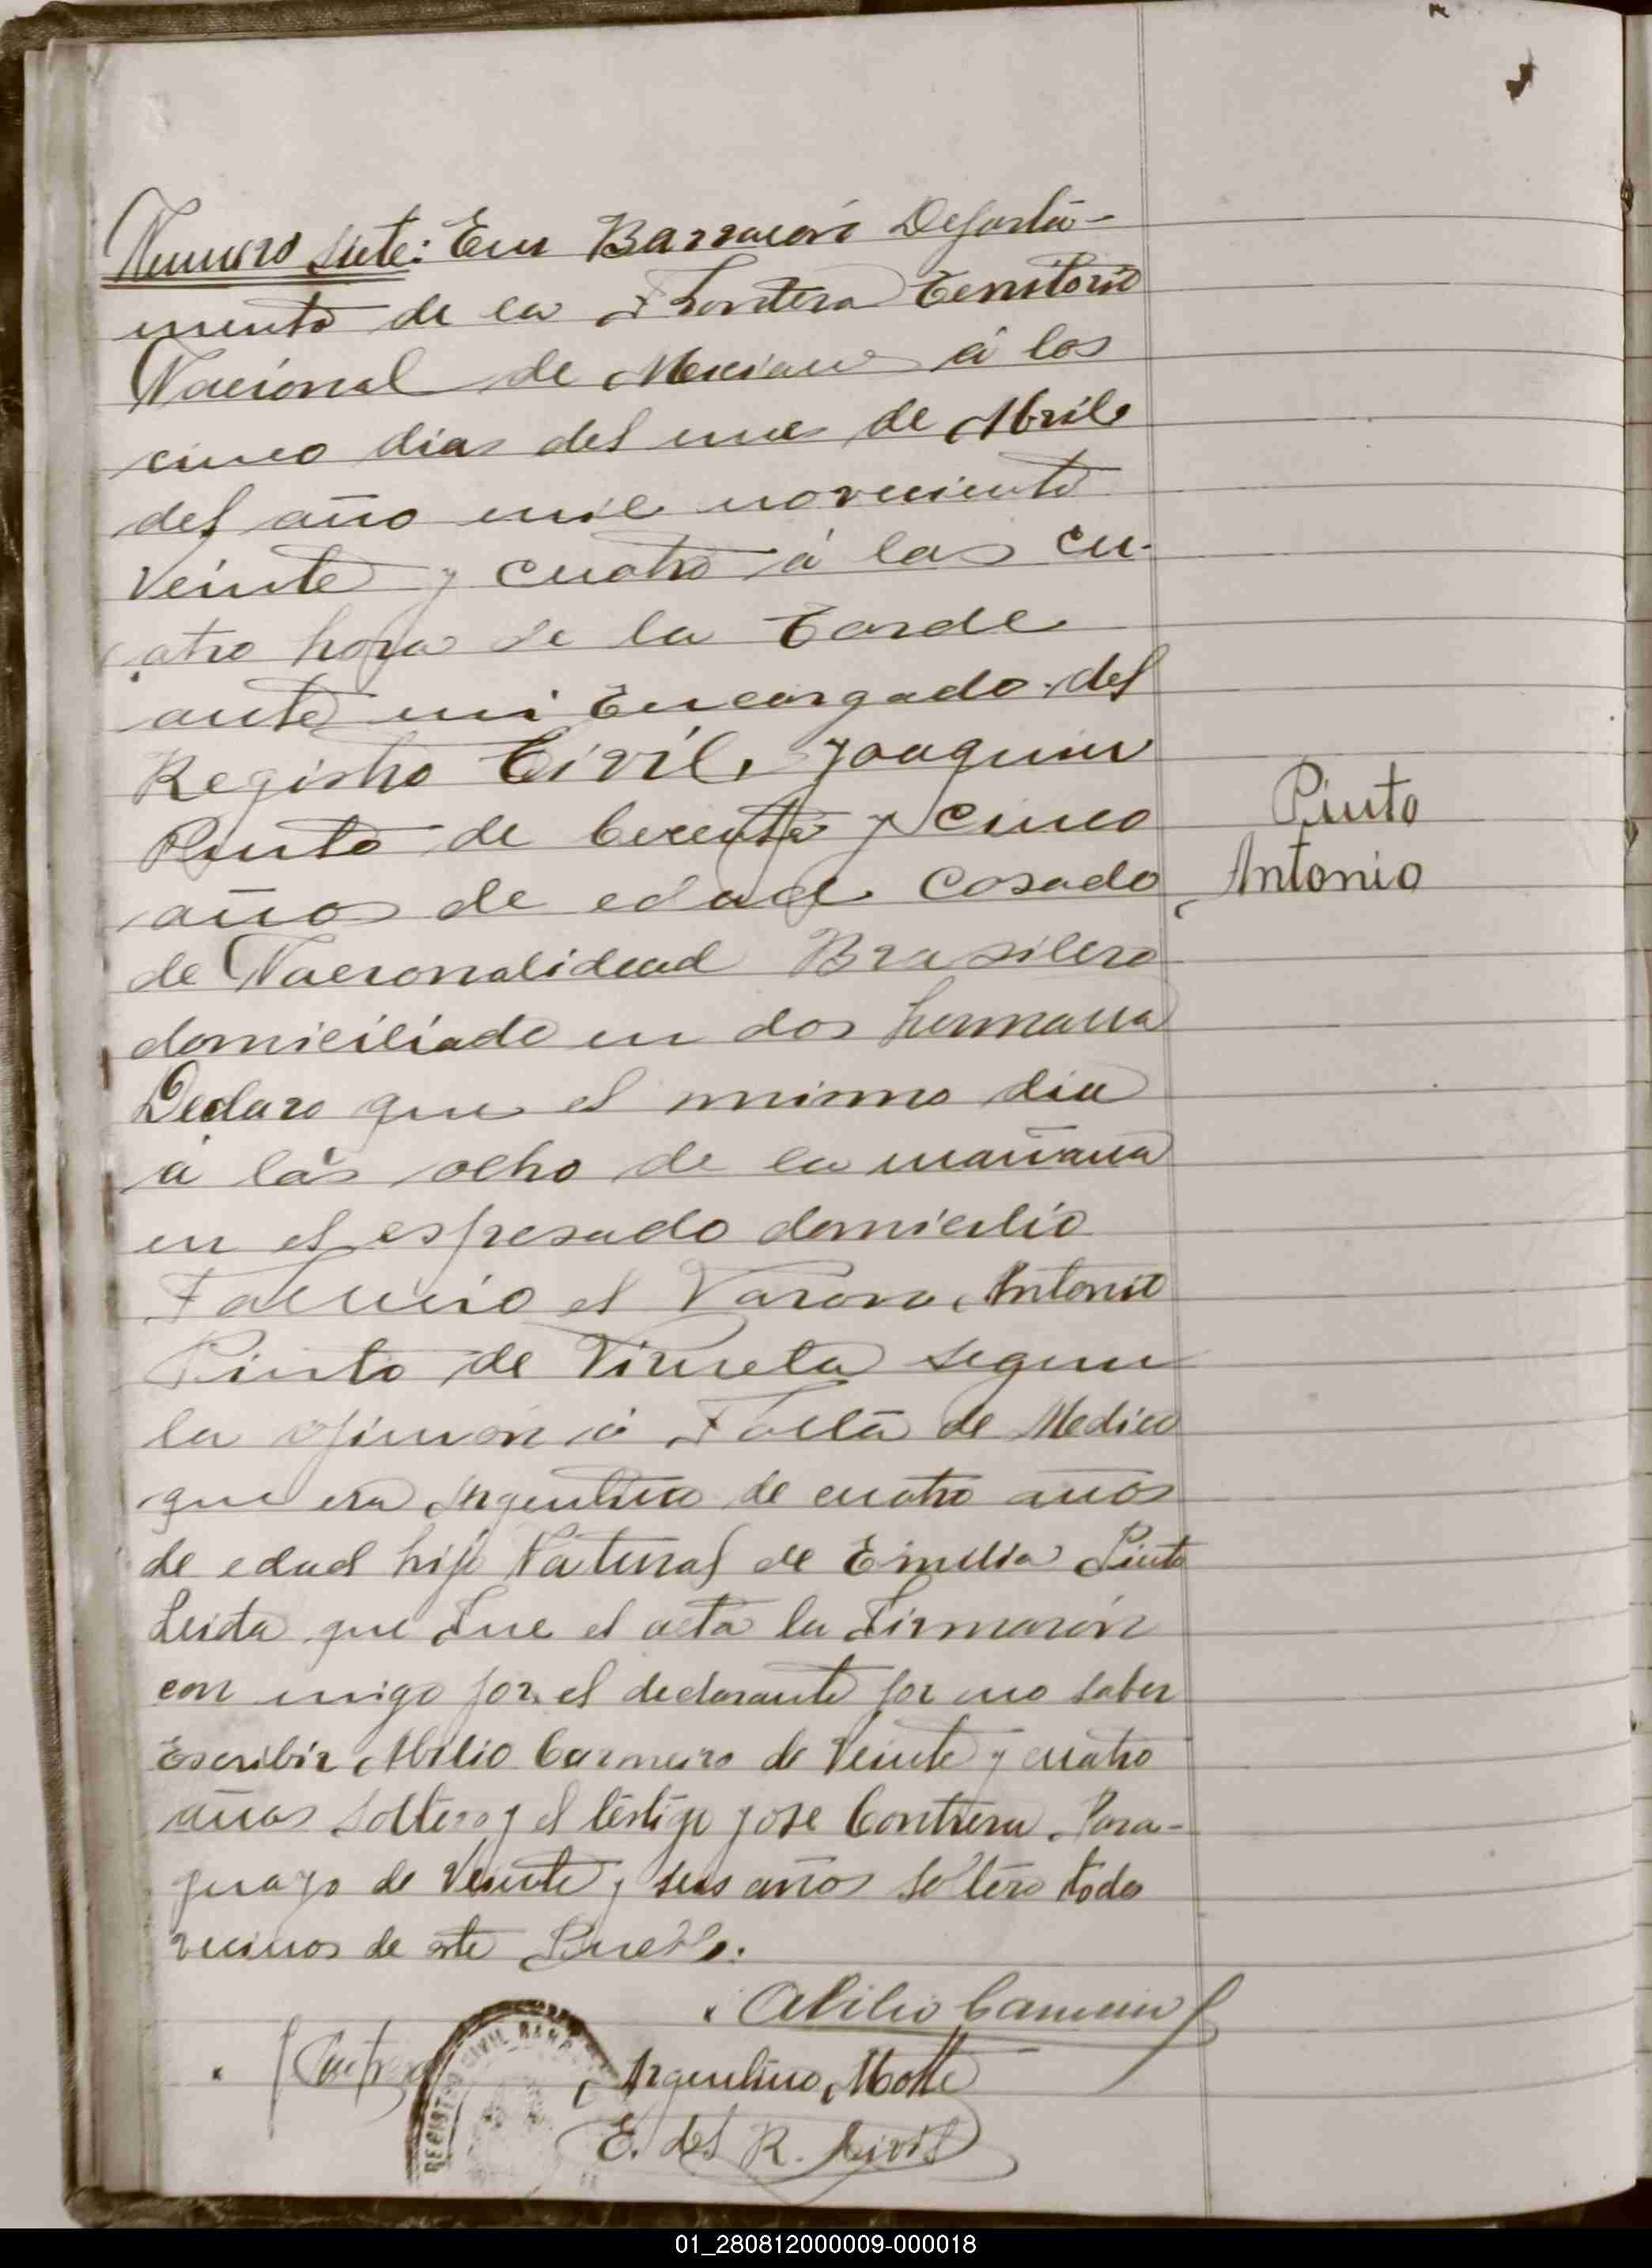 Numero siete: En Barracon Departa-
mento de la Frontera Territorio
Nacional de Misiones á los
cinco dias del mes de Abril
del año mil noveciento
veinte y cuatro á las cu-
atro hora de la tarde
ante mi Encargado del
Registro Civil, Joaquin
Pinto de cecenta y cinco
años de edad Casado
de Nacionalidad Brasilero
domiciliado en dos hermana
Declaro que el mismo dia
á las ocho de la mañana
en el espresado domicilio
Fallecio el Varon Antonio
Pinto de Viruela segun
la opinion á Falta de Medico
que era Argentino de cuatro años
de edad hijo Natural de Emilia Pinto
Leida que Fue el acta la Firmaron
con migo por el declarante por no saber
Escribir Abilio Carneiro de veinte y cuatro
años soltero y el testigo Jose Contrera Para-
guayo de veinte y seis años soltero todos
vecinos de este Pueblo.
Pinto
Antonio
Abilio Carneiro
J Contrera
REGISTRO CIVIL
Argentino Motte
E. del R. Civil
01_280812000009-000018